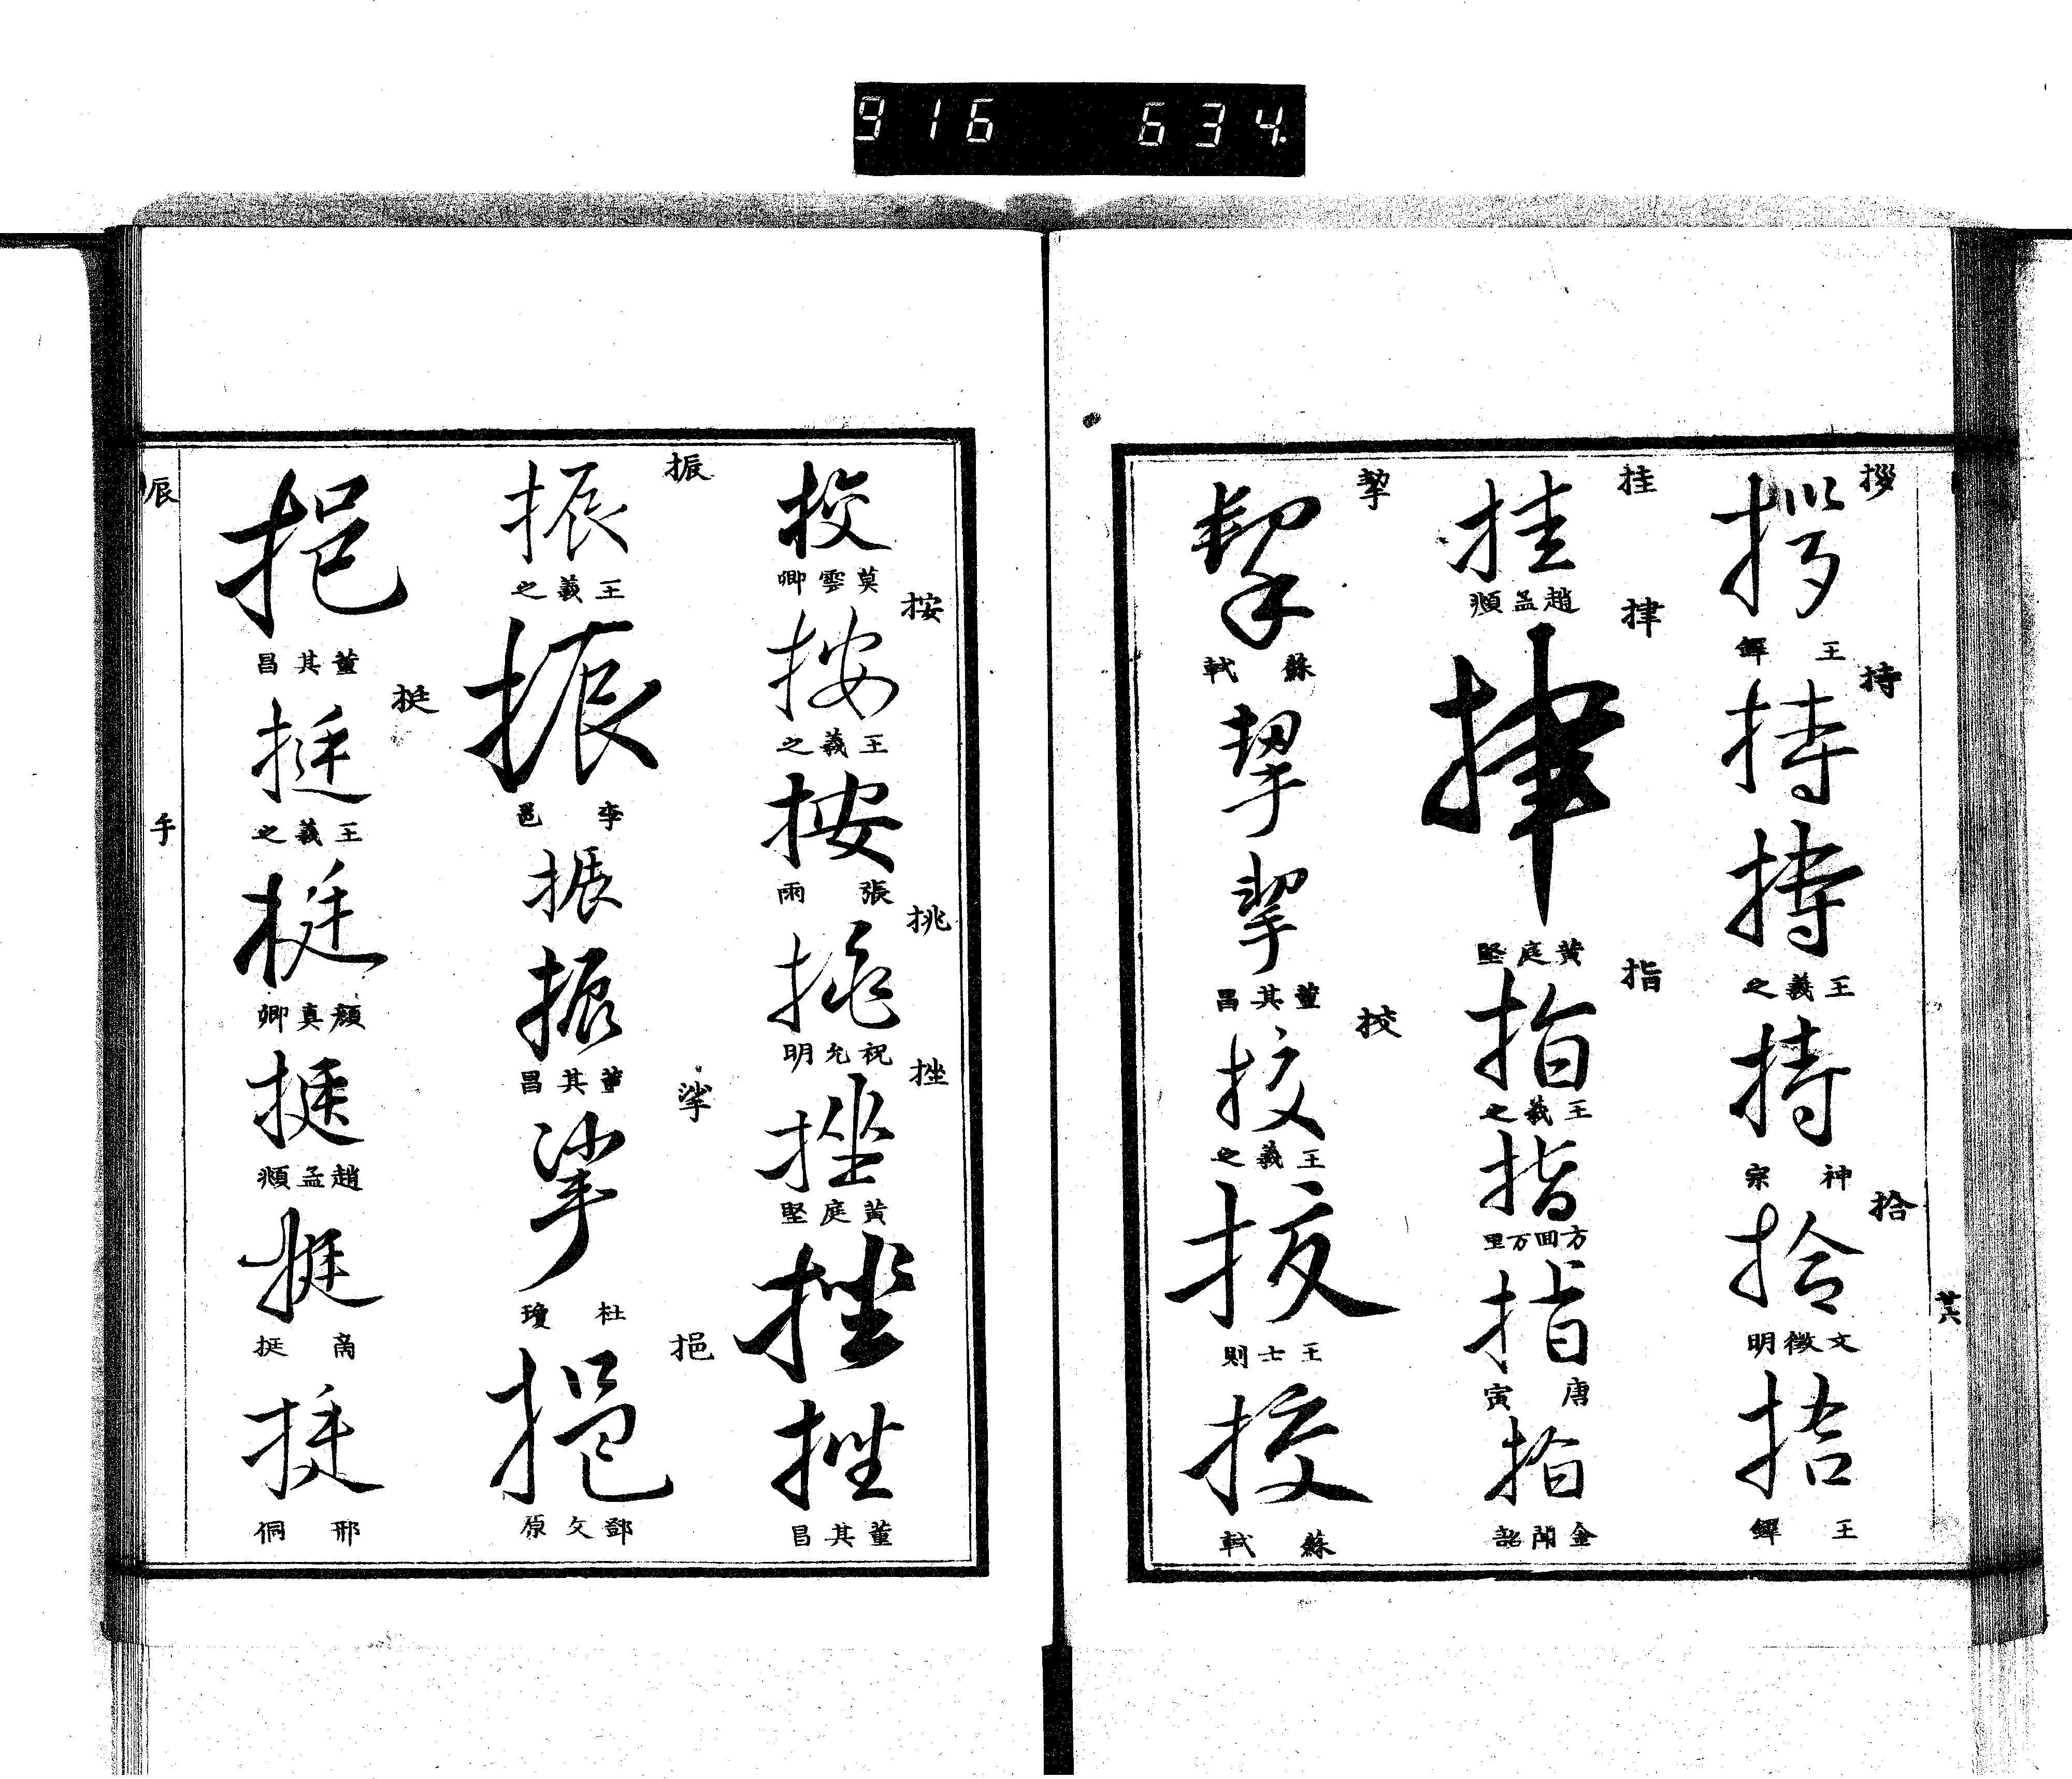 916 634
拶
拶
王鐸
持
持
持
王羲之
持
神宗
拾
拾
文徵明
拾
王鐸
挂
挂
趙孟頫
𢫾
黃庭堅
指
指
王羲之
指
方回万里
指
唐寅
指
金聞詔
挈
挈
蘇軾
挈
挈
董其昌
挍
挍
王羲之
挍
王士則
挍
蘇軾
廿六
挍
莫雲卿
按
按
王羲之
按
張雨
挑
挑
祝允明
挫
挫
黃庭堅
挫
挫
董其昌
振
振
王羲之
振
李邕
振
振
董其昌
挲
挲
杜瓊
挹
挹
鄧文原
挹
董其昌
挺
挺
王羲之
挺
顏真卿
挺
趙孟頫
挺
商挺
挺
邢侗
辰
手